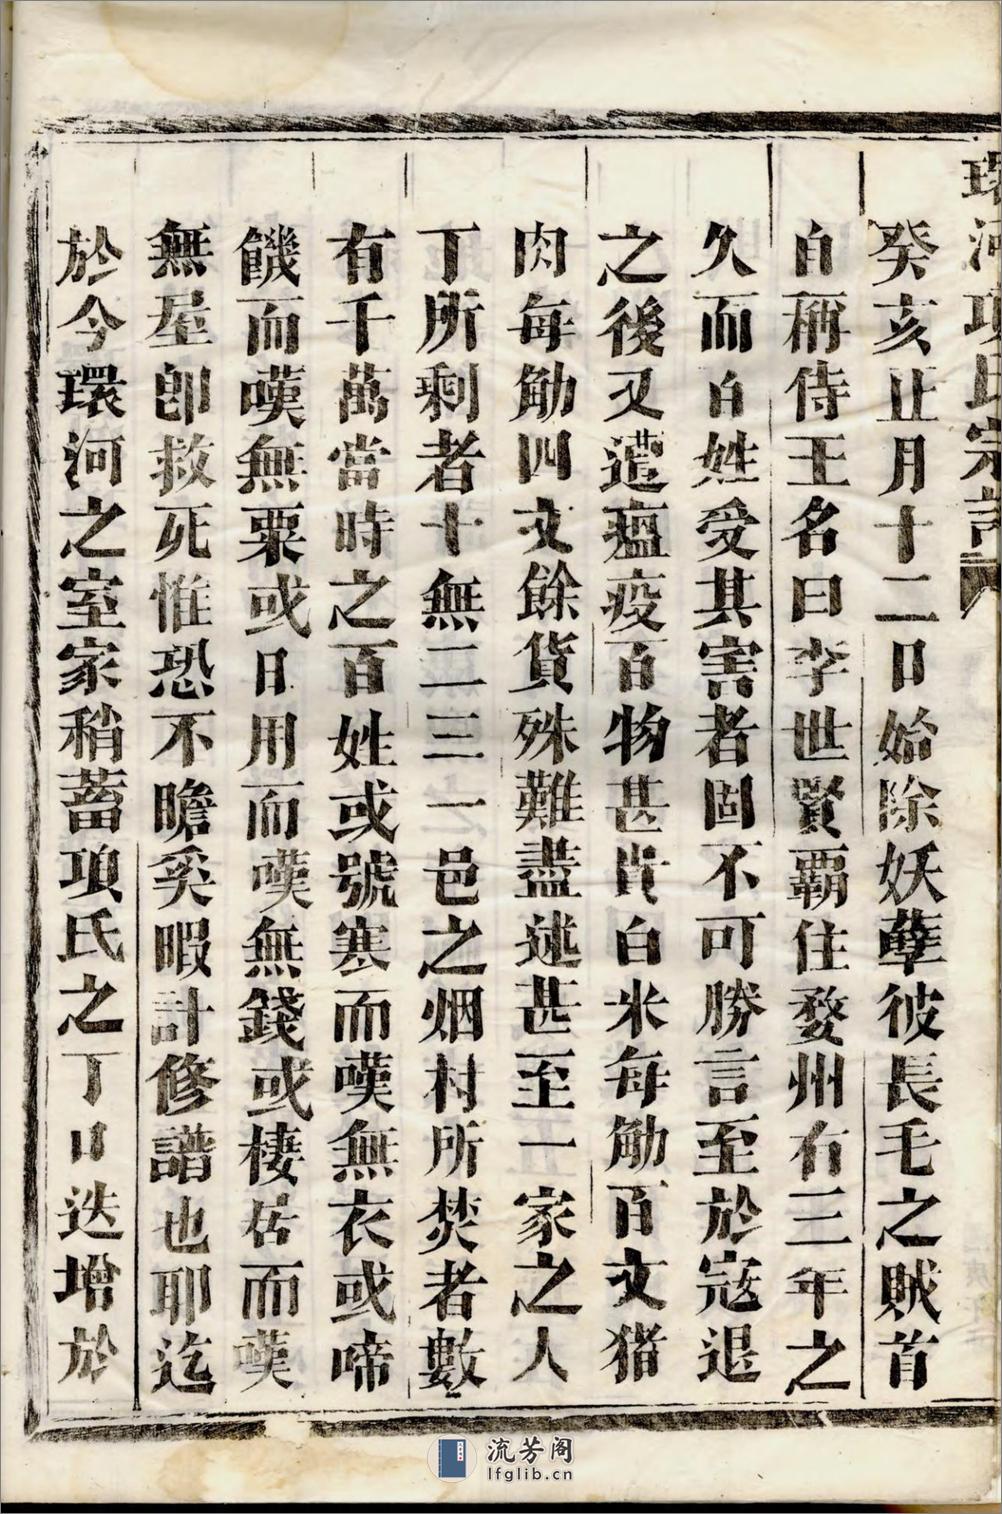 環河項氏宗譜
癸亥正月十二日始除妖孽彼長毛之賊首
自稱侍王名曰李世賢覇住婺州有三年之
久而百姓受其害者固不可勝言至於寇退
之後又遭瘟疫百物甚貴白米每觔百文猪
肉每觔四文餘貨殊難盡述甚至一家之人
丁所剩者十無二三一邑之烟村所焚者數
有千萬當時之百姓或號寒而嘆無衣或啼
饑而嘆無粟或日用而嘆無錢或棲居而嘆
無屋卽救死惟恐不瞻奚暇計修譜也耶迄
於今環河之室家稍蓄項氏之丁口迭增於
流芳阁
lfglib.cn